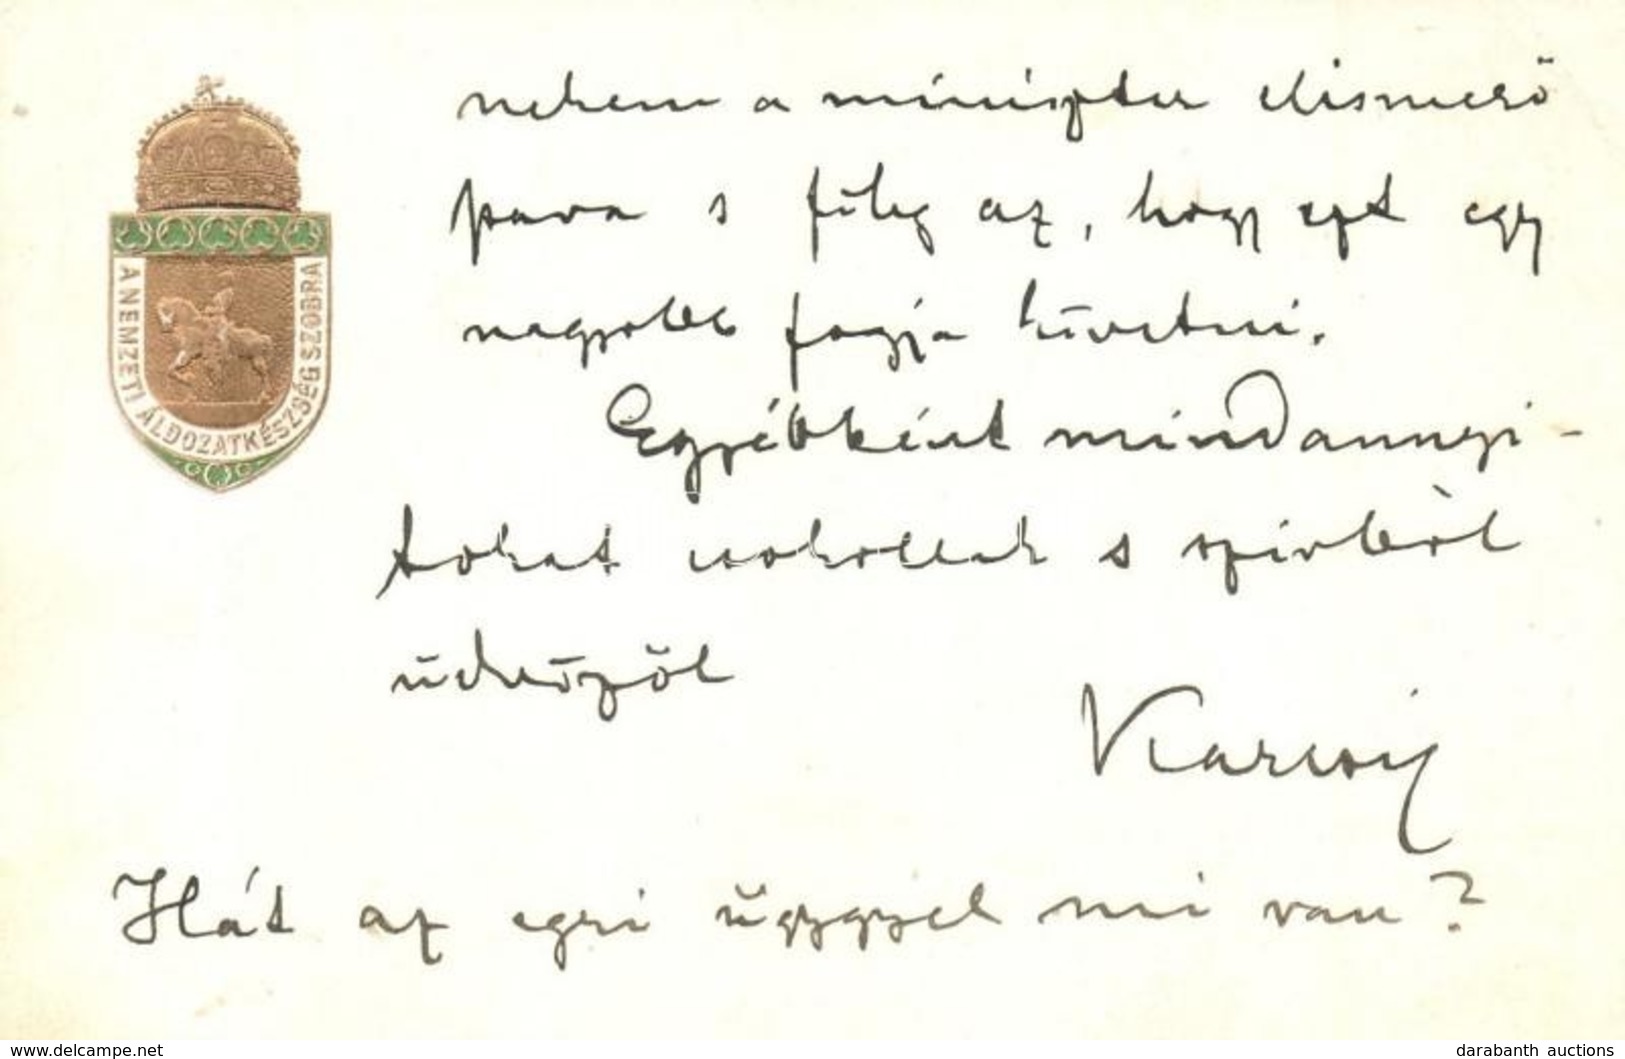 nekem a miniszter elismerő
szava s főleg az, hogy ezt egy
nagyobb fogja követni.
Egyébként mindannyi-
tokat csókollak s szívből
üdvözöl
Karcsi
Hát az egri üggyel mi van?
A NEMZETI ÁLDOZATKÉSZSÉG SZOBRA
www.delcampe.net
darabanth auctions